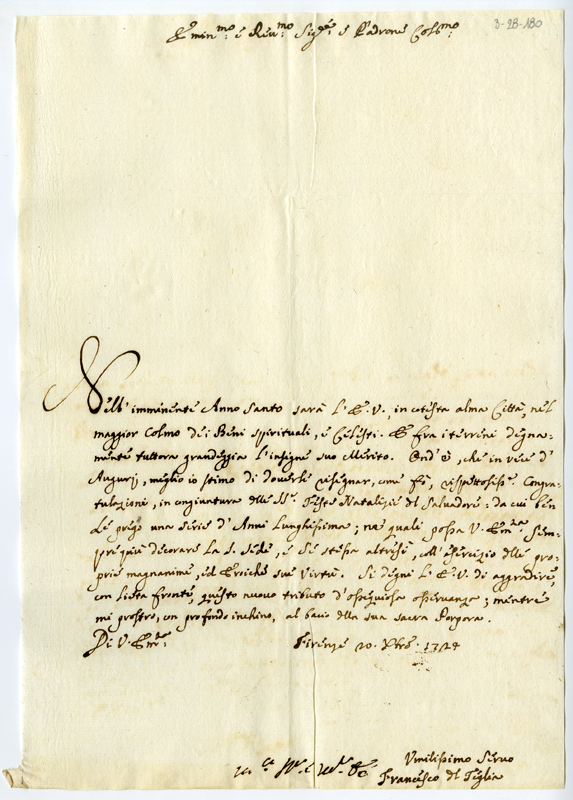 3-2B-180
Emin.mo e Rev.mo Sig.re e Padrone Col.mo
Nell' imminente Anno Santo sarà l' E. V., in cotesta alma Città, nel
maggior Colmo dei Beni spirituali, e Celesti. E fra i terreni degna-
mente tuttora grandeggia l'insigne suo Merito. Ond' è, che in vece d'
Augurij, meglio io stimo di doverle rasegnar, come fò, rispettosiss.e Congra-
tulazioni, in congiuntura delle SS. Feste Natalizie del Salvadore: da cui ben
Le prego una serie d' Anni Lunghissima; ne quali possa V. Em.za sem-
pre più decorare La S. Sede, e Se stessa altresì, coll' esercizio delle pro-
prie magnanime, ed Eroiche sue Virtù. Si degni L' E. V. di aggradire,
con Lieta fronte, questo nuovo tributo d'ossequiosa osservanza; mentre
mi prostro, con profondo inchino, al bacio della sua sacra Porpora.
Di V. Em.za Firenze 20. Xbre. 1724
Umilissimo Servo
Francesco del Teglia